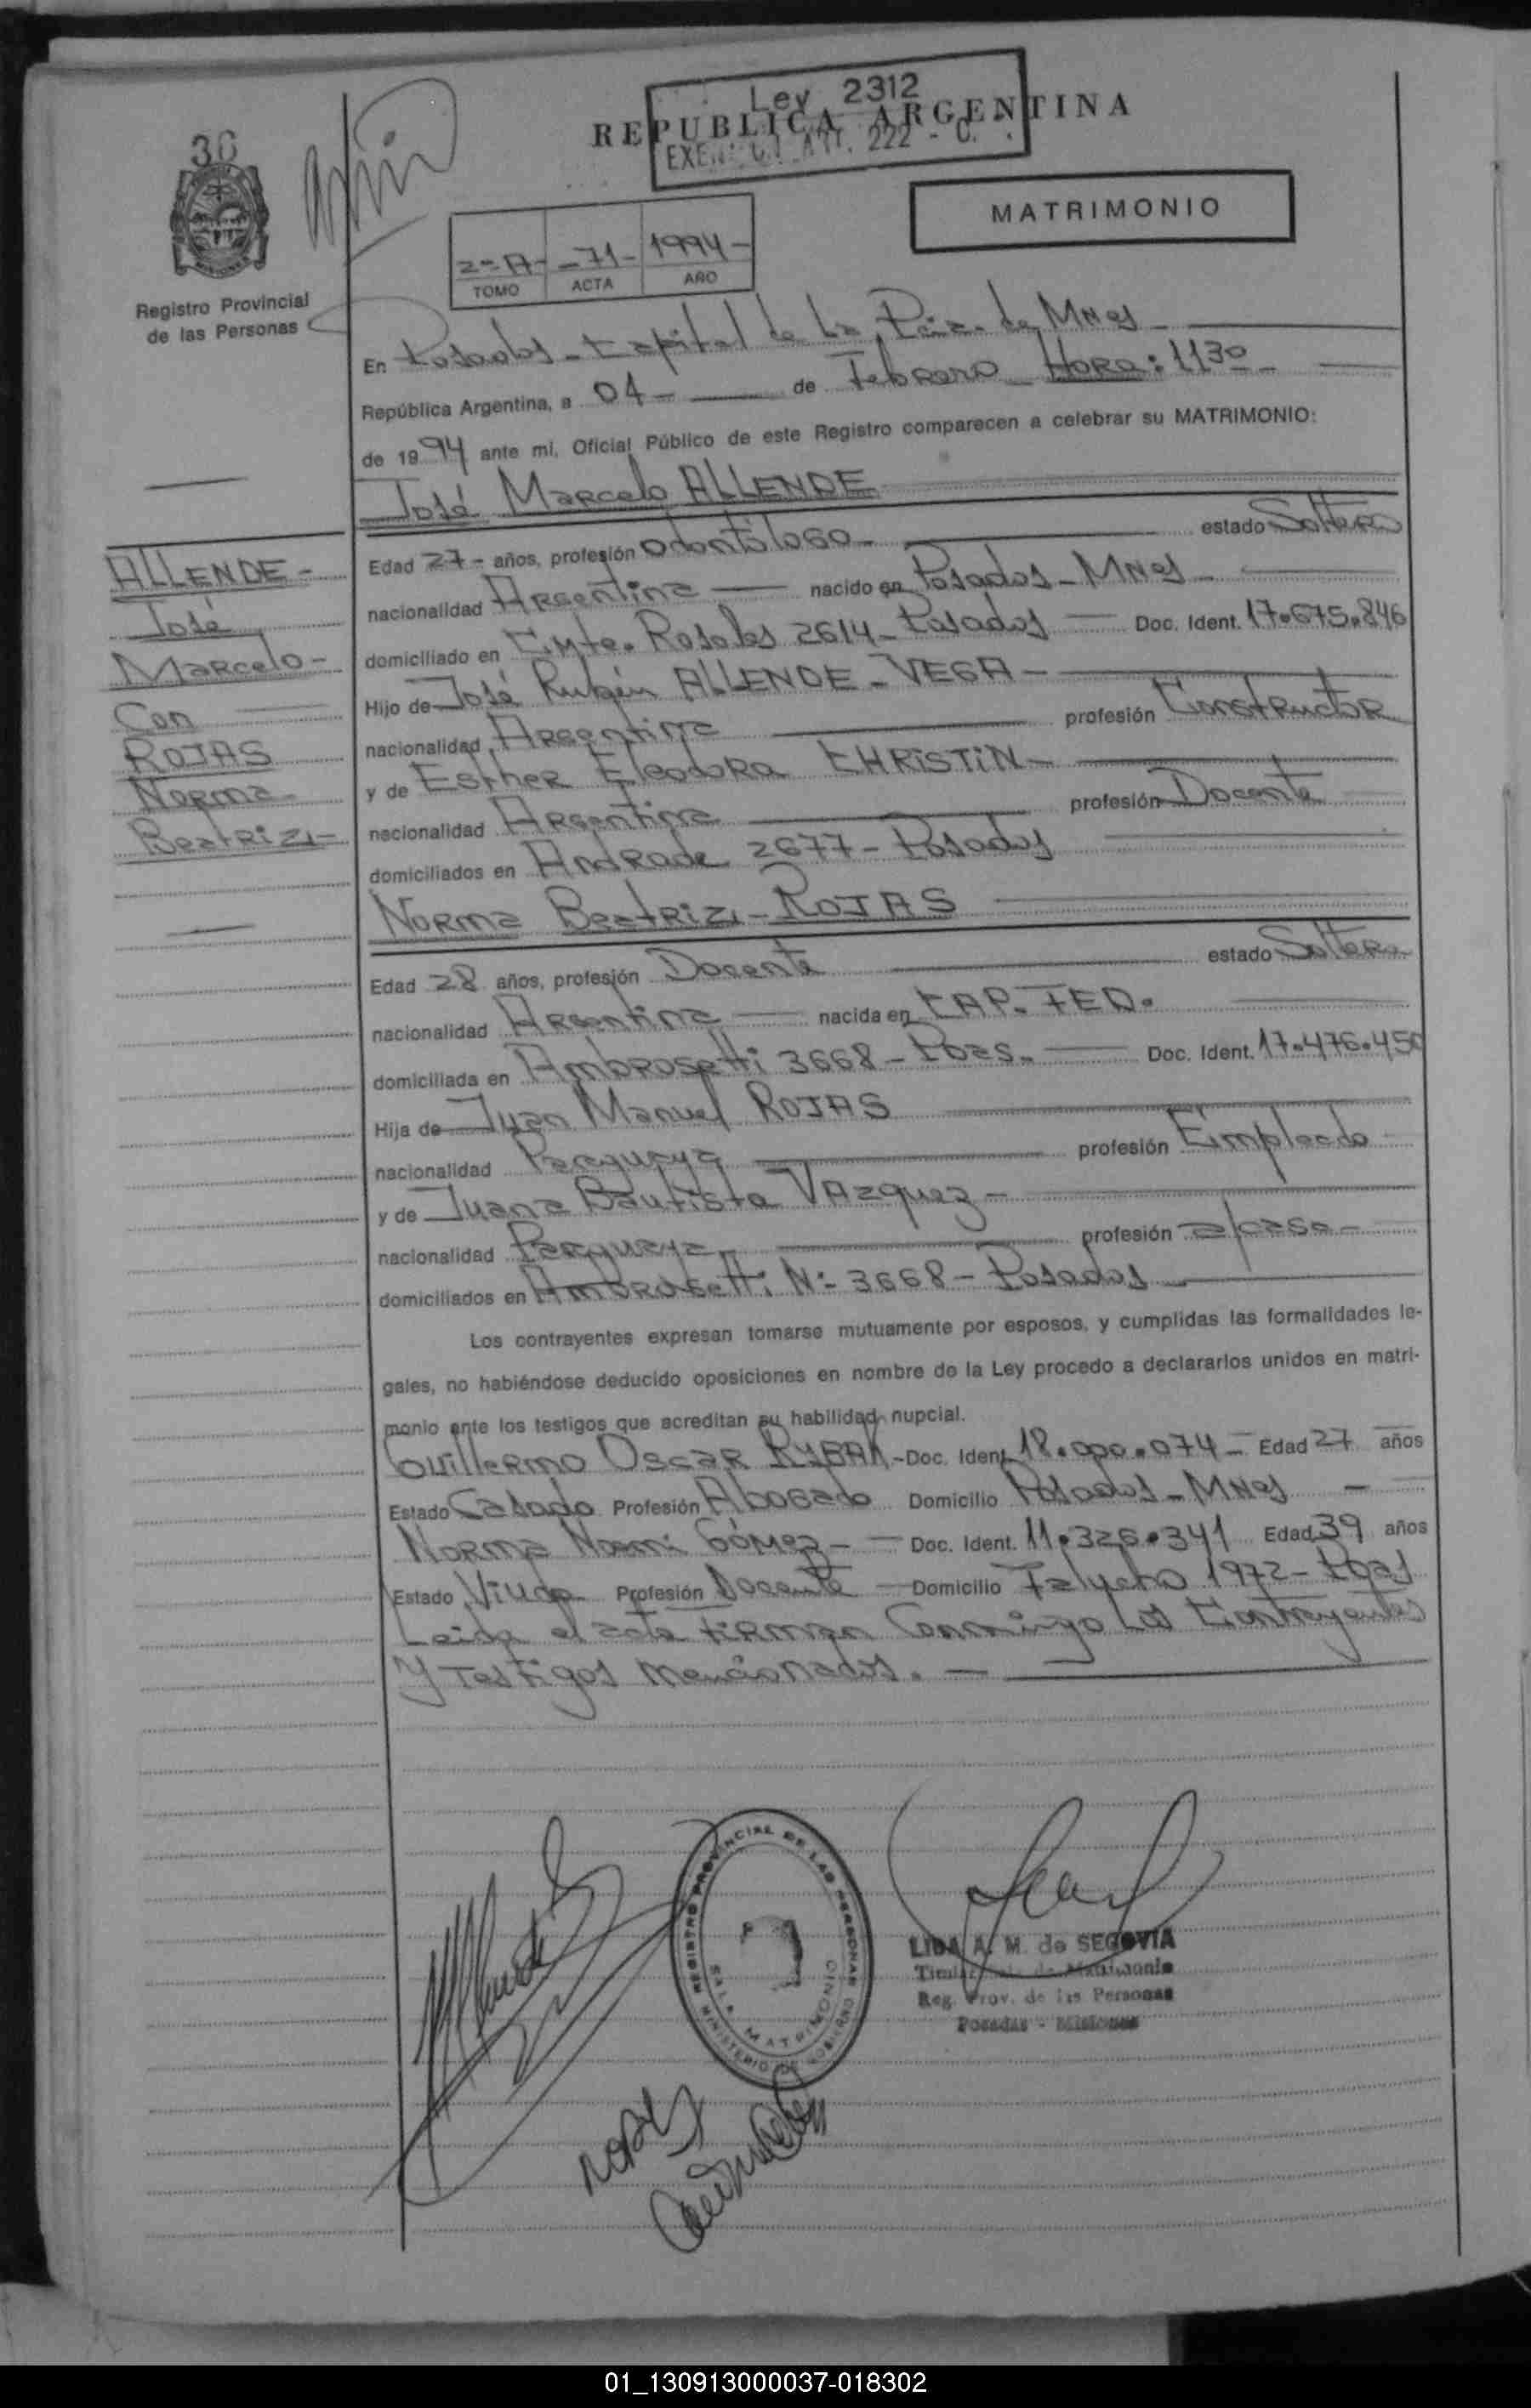 Ley 2312
REPUBLICA ARGENTINA
ART. 222 - C.
36
MATRIMONIO
2º A - - 71 - 1994 -
TOMO ACTA AÑO
MISIONES
Registro Provincial
de las Personas
En Posadas - Capital de La Pcia. de Mnes
República Argentina, a 04 - de Febrero - HORA: 1130 -
de 1994 ante mi, Oficial Público de este Registro comparecen a celebrar su MATRIMONIO:
José Marcelo ALLENDE
Edad 27 - años, profesión Odontólogo - estado Soltero
ALLENDE -
José
Marcelo -
Con
ROJAS
Norma -
Beatriz -
nacionalidad Argentina nacido en Posadas - Mnes -
domiciliado en Cmte. Rosales 2614 - Posadas Doc. Ident. 17.675.846
Hijo de José Rubén ALLENDE - VEGA -
nacionalidad Argentina profesión Constructor
y de Esther Eleodora CHRISTIN -
nacionalidad Argentina profesión Docente
domiciliados en Andrade 2677 - Posadas
Norma Beatriz - ROJAS
Edad 28 años, profesión Docente estado Soltera
nacionalidad Argentina nacida en CAP. FED.
domiciliada en Ambrosetti 3668 - Pdas. Doc. Ident. 17.476.450
Hija de Juan Manuel ROJAS
nacionalidad Paraguaya profesión Empleado -
y de Juana Bautista VAzquez -
nacionalidad Paraguaya profesión a/casa -
domiciliados en Ambrosetti Nº 3668 - Posadas
Los contrayentes expresan tomarse mutuamente por esposos, y cumplidas las formalidades le-
gales, no habiéndose deducido oposiciones en nombre de la Ley procedo a declararlos unidos en matri-
monio ante los testigos que acreditan su habilidad nupcial.
Guillermo Oscar RYBAK - Doc. Ident. 18.000.074 - Edad 27 años
Estado Casado Profesión Abogado Domicilio Posadas - Mnes -
Norma Noemi Gómez - Doc. Ident. 11.326.341 Edad 39 años
Estado Viuda Profesión Docente Domicilio Falucho 1972 - Pdas
Leida el acta firman Conmigo Los Contrayentes
Y Testigos Mencionados. -
REGISTRO PROVINCIAL DE LAS PERSONAS
MINISTERIO DE GOBIERNO
SALA MATRIMONIO
LIDA A. M. de SEGOVIA
Reg. Prov. de las Personas
Posadas - Misiones
01_130913000037-018302